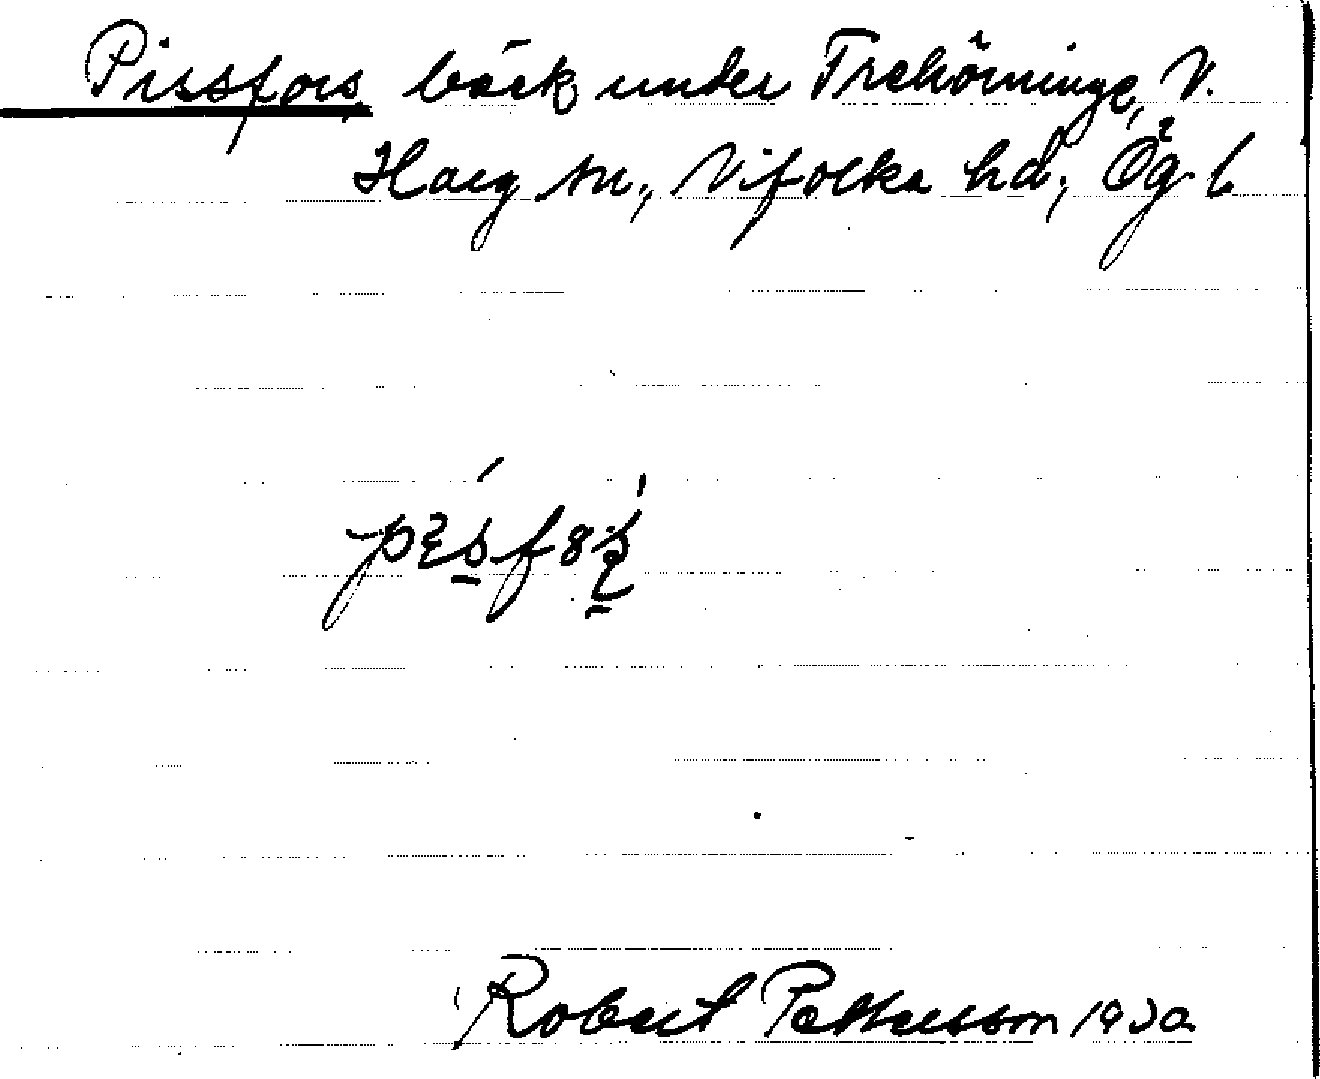 Pissfors, bäck under Trehörninge, V.
Harg sn, Vifolka hd, Ög. l.
Robert Pettersson 1930